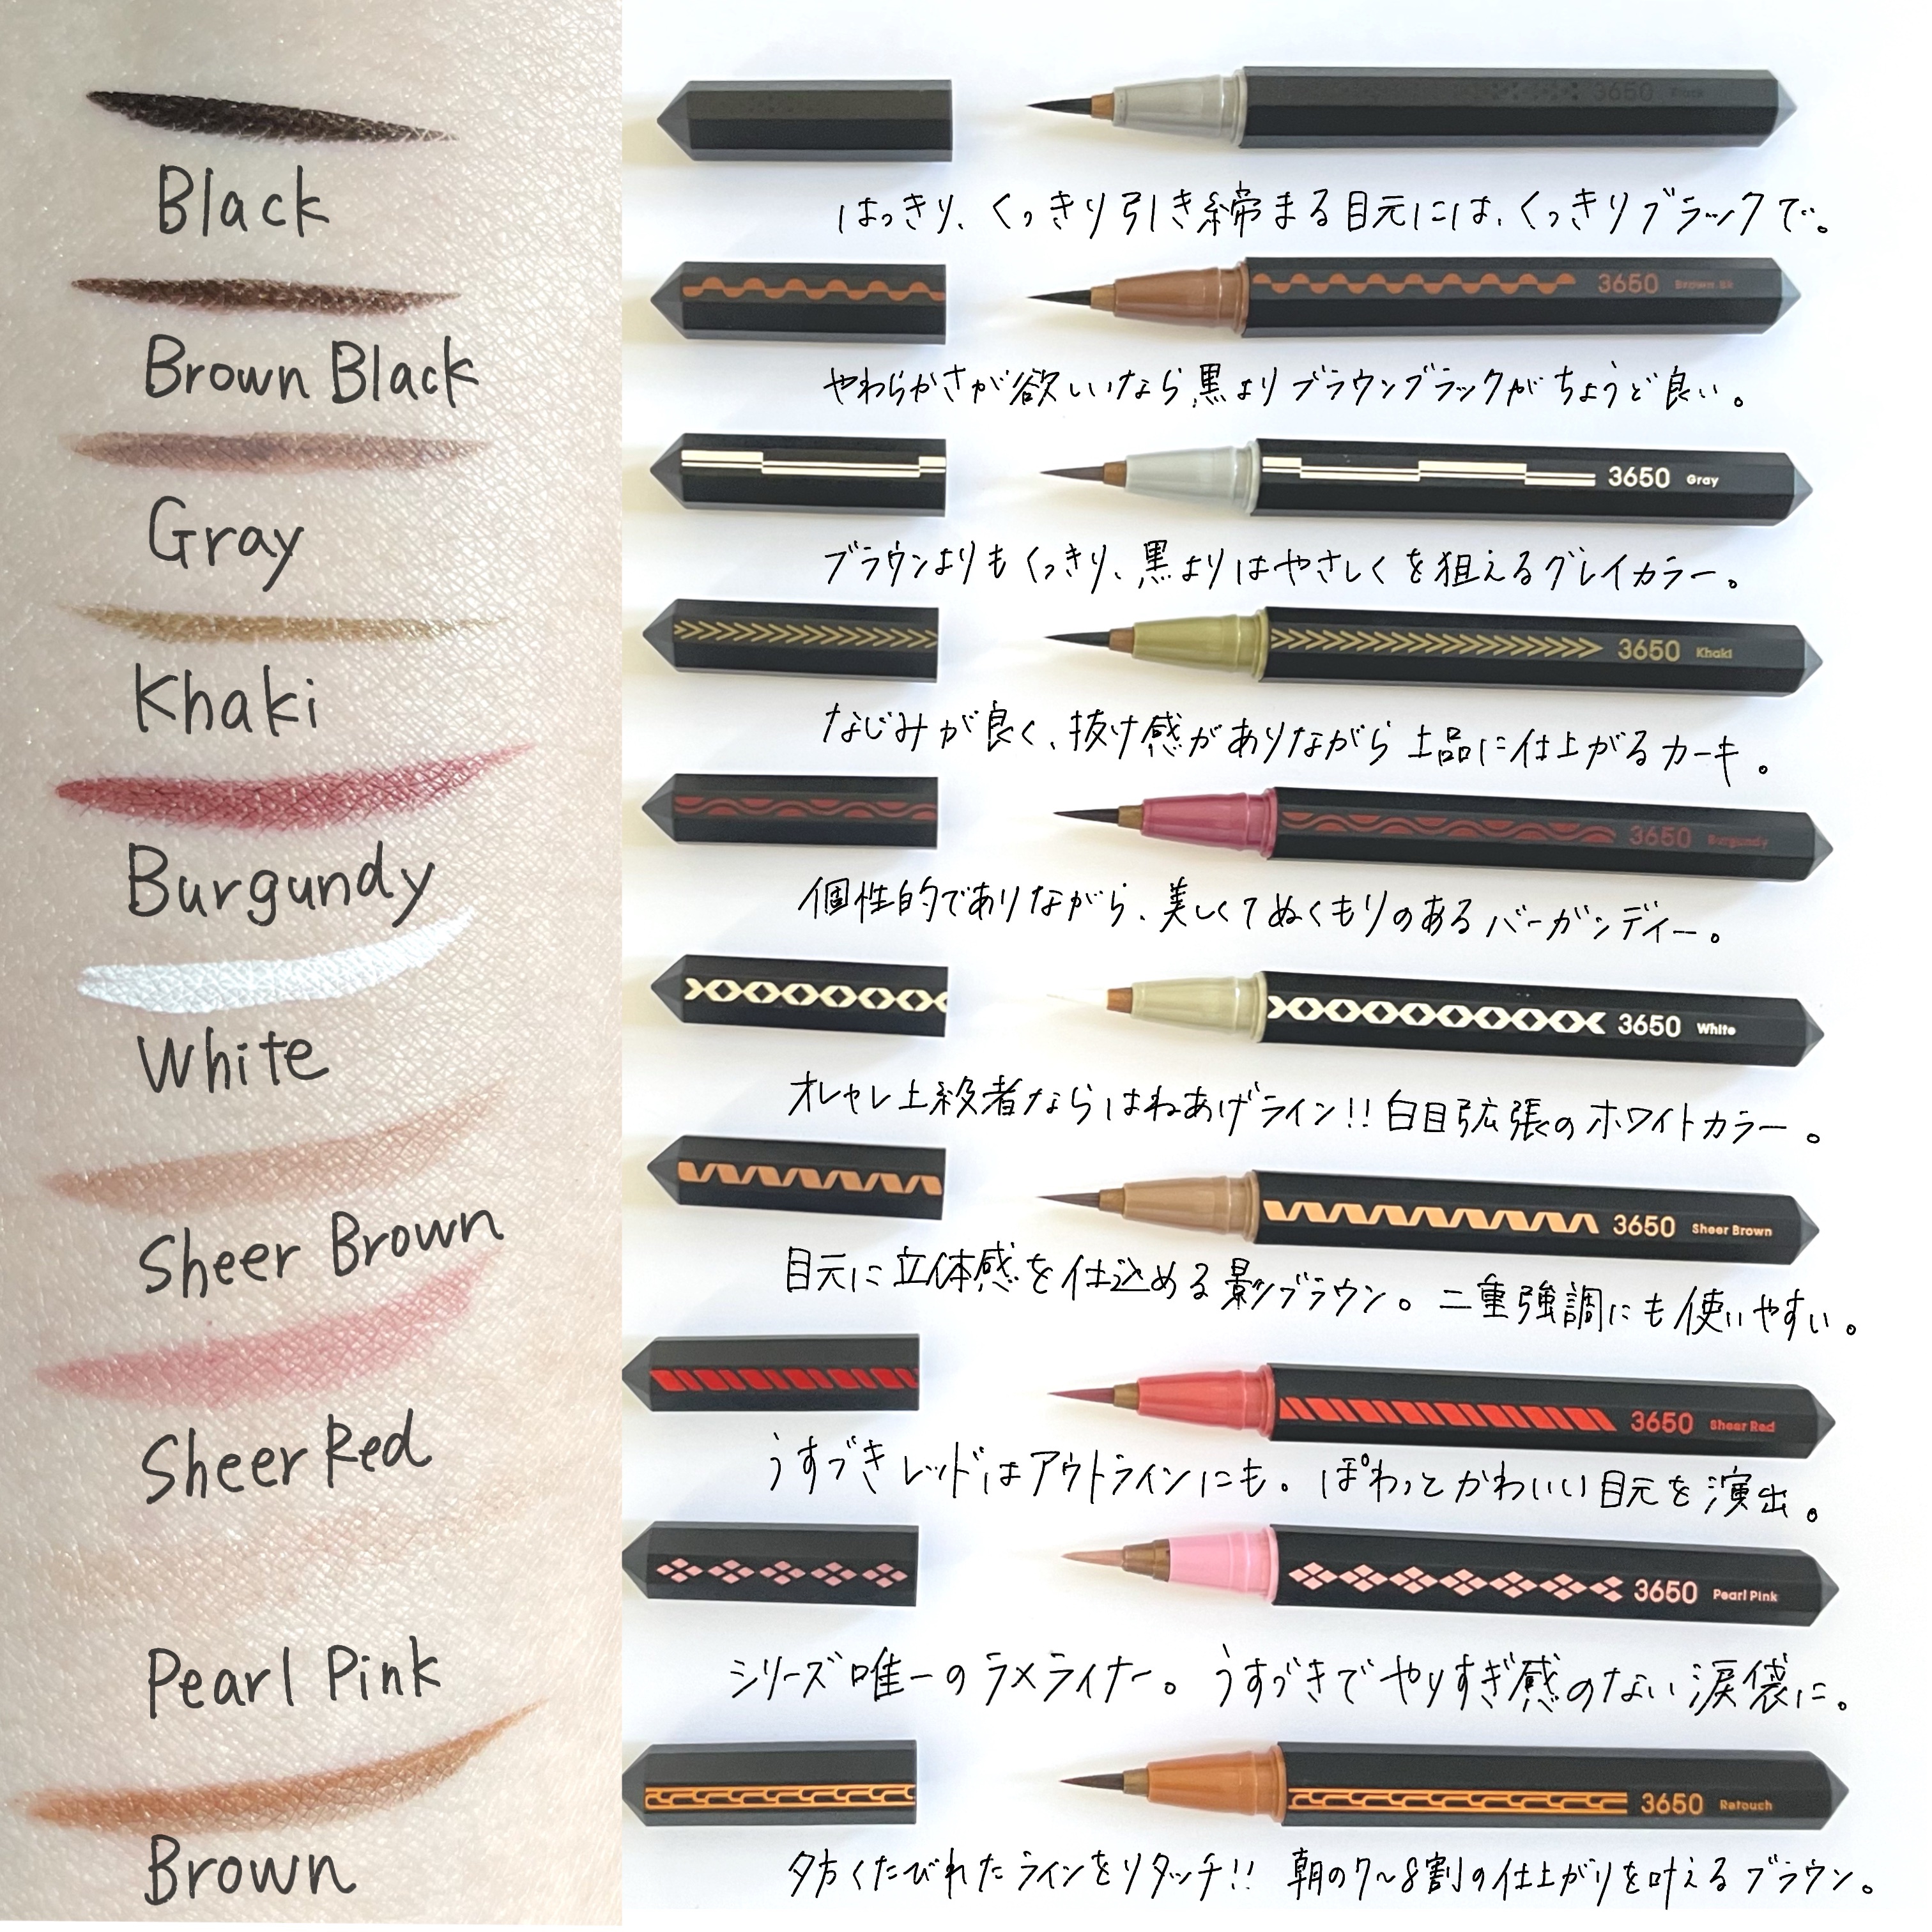 3650 Black
Black
はっきり、くっきり引き締まる目元には、くっきりブラックで。
3650 Brown Bk
Brown Black
やわらかさが欲しいなら、黒よりブラウンブラックがちょうど良い。
3650 Gray
Gray
ブラウンよりもくっきり、黒よりはやさしくを狙えるグレイカラー。
3650 Khaki
Khaki
なじみが良く、抜け感がありながら上品に仕上がるカーキ。
3650 Burgundy
Burgundy
個性的でありながら、美しくてぬくもりのあるバーガンディー。
3650 White
White
オシャレ上級者ならはねあげライン!! 白目拡張のホワイトカラー。
3650 Sheer Brown
Sheer Brown
目元に立体感を仕込める影ブラウン。二重強調にも使いやすい。
3650 Sheer Red
Sheer Red
うすづきレッドはアウトラインにも。ぽわっとかわいい目元を演出。
3650 Pearl Pink
Pearl Pink
シリーズ唯一のラメライナー。うすづきでやりすぎ感のない涙袋に。
3650 Retouch
Brown
夕方くたびれたラインをリタッチ!! 朝の7~8割の仕上がりを叶えるブラウン。